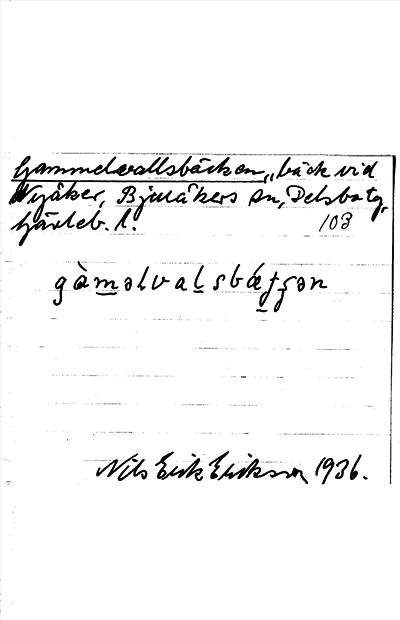 Gammelvallsbäcken, bäck vid
Nyåker, Bjuråkers sn, Delsbo tg,
Gävleb. l. 103
gàməlvaḻsbætʃən
Nils Erik Erikson 1936.